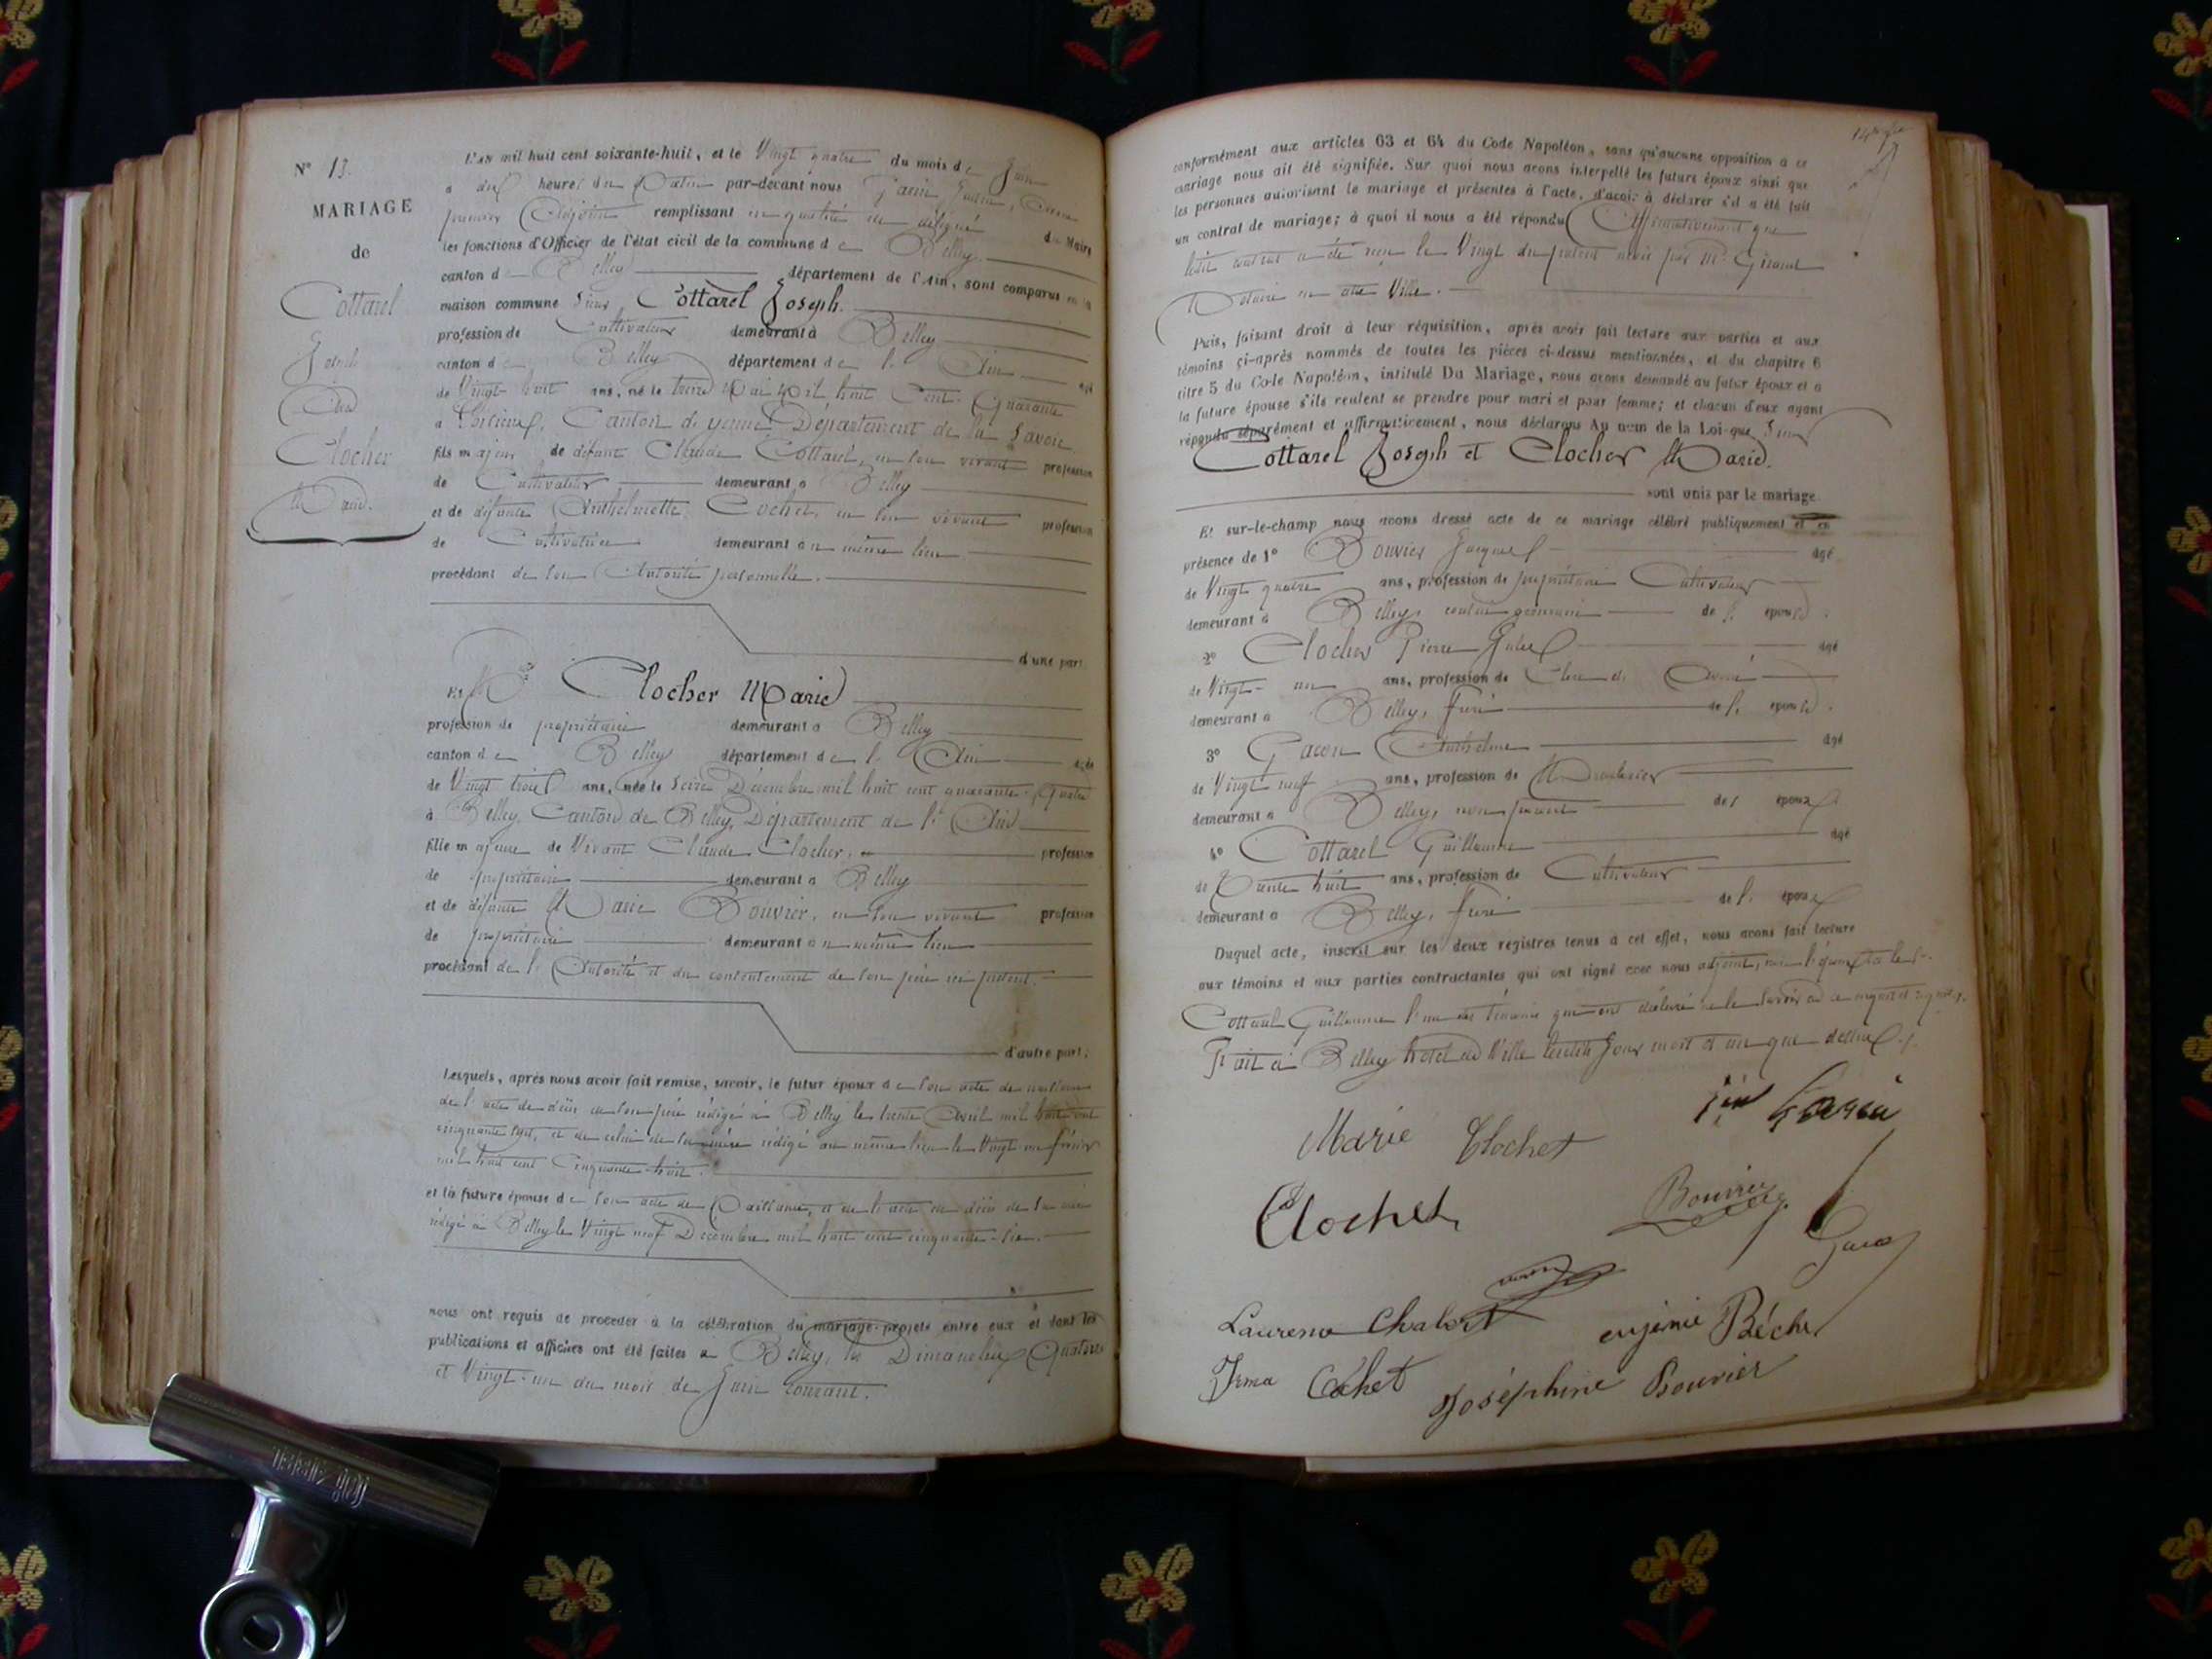 N° 13.
MARIAGE
de
Cottarel
Joseph
Avec
Clocher
Marie.
L'AN mil huit cent soixante-huit, et le Vingt quatre du mois de Juin
à dix heures du Matin par-devant nous
premier Adjoint remplissant en qualité de délégué du Maire
les fonctions d'Officier de l'état civil de la commune de Belley.
canton de Belley département de l'Ain, sont comparus en la
maison commune Sieur Cottarel Joseph.
profession de Cultivateur demeurant à Belley
canton de Belley département de l'Ain agé
de Vingt-huit ans, né le treize Mai Mil huit Cent Quarante
à Canton de yenne Département de la Savoie
fils majeur de défunt Claude Cottarel, en son vivant profession
de Cultivateur demeurant à Belley
et de défunte Anthelmette Cochet, en son vivant profession
de Cultivatrice demeurant au même lieu.
procédant de son Autorité personnelle.
d'une part.
Et Mlle Clocher Marie
profession de propriétaire demeurant à Belley
canton de Belley département de l'Ain agée
de Vingt trois ans, née le Seize Décembre mil huit cent quarante-Quatre
à Belley, Canton de Belley, Département de l'Ain
fille majeure de Vivant Claude Clocher, profession
de propriétaire demeurant à Belley
et de défunte Marie Bouvier, en son vivant profession
de propriétaire demeurant au même lieu
procédant de l'Autorité et du consentement de son père ici présent.
d'autre part;
Lesquels, après nous avoir fait remise, savoir, le futur époux de son acte de naissance
de l'acte de décès de son père rédigé à Belley le trente Avril mil huit cent
cinquante sept, et de celui de sa mère rédigé au même lieu le Vingt un février
mil huit cent Cinquante-huit.
et la future épouse de son acte de Naissance, et de l'acte de décès de sa mère
rédigé à Belley le Vingt neuf Décembre mil huit cent cinquante-six.
nous ont requis de procéder à la célébration du mariage projeté entre eux et dont les
publications et affiches ont été faites à Belley, les Dimanches Quatorze
et Vingt-un du mois de Juin courant.
conformément aux articles 63 et 64 du Code Napoléon, sans qu'aucune opposition à ce
mariage nous ait été signifiée. Sur quoi nous avons interpellé les futurs époux ainsi que
les personnes autorisant le mariage et présentes à l'acte, d'avoir à déclarer s'il a été fait
un contrat de mariage; à quoi il nous a été répondu Affirmativement que
ledit contrat a été reçu le Vingt du présent mois par Me Giraud
Notaire en cette Ville.
Puis, faisant droit à leur réquisition, après avoir fait lecture aux parties et aux
témoins ci-après nommés de toutes les pièces ci-dessus mentionnées, et du chapitre 6
titre 5 du Code Napoléon, intitulé Du Mariage, nous avons demandé au futur époux et à
la future épouse s'ils veulent se prendre pour mari et pour femme; et chacun d'eux ayant
répondu séparément et affirmativement, nous déclarons Au nom de la Loi que Sieur
Cottarel Joseph et Clocher Marie.
sont unis par le mariage.
Et sur-le-champ nous avons dressé acte de ce mariage célébré publiquement et en
présence de 1° Bouvier Jacques agé
de Vingt quatre ans, profession de propriétaire Cultivateur
demeurant à Belley, cousin germain de l'épouse.
2° Clocher Pierre Jules agé
de Vingt-un ans, profession de Clerc d'Avoué
demeurant à Belley, frère de l'épouse.
3° Gacon Anthelme agé
de Vingt neuf ans, profession de
demeurant à Belley, non parent des époux
4° Cottarel Guillaume agé
de Trente huit ans, profession de Cultivateur
demeurant à Belley, frère de l'époux
Duquel acte, inscrit sur les deux registres tenus à cet effet, nous avons fait lecture
aux témoins et aux parties contractantes qui ont signé avec nous adjoint, non l'époux et le Sr.
Cottarel Guillaume l'un des témoins qui ont déclaré ne le savoir de ce enquis et requis.
Fait à Belley hotel de Ville lesdits jour mois et an que dessus.
Marie Clochet
Clochet
Bouvier
Gacon
Laurence Chabert
eugénie Béchet
Irma Cochet
Joséphine Bouvier